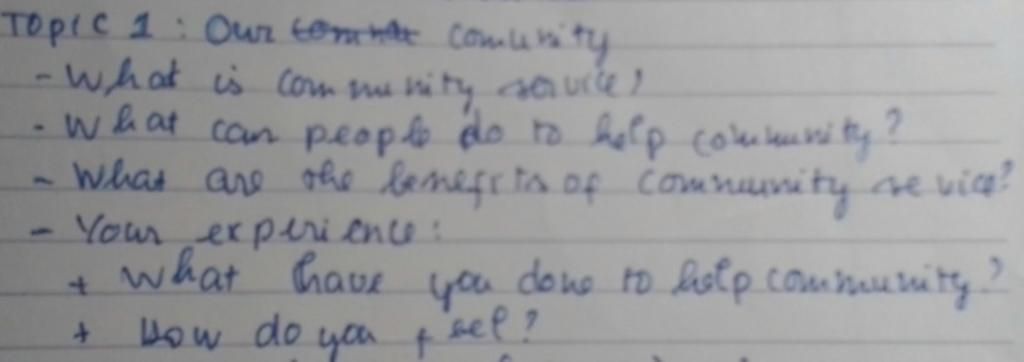 Topic 1 : Our comunity
- What is community service?
- What can people do to help community?
- What are the benefits of community service?
- Your experience:
+ What have you done to help community?
+ How do you feel?